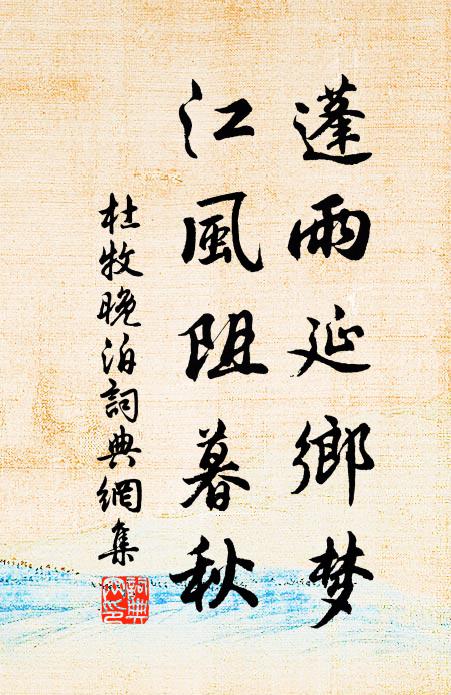 蓬雨延鄉梦
江風阻暮秋
杜牧晚泊詞典網集